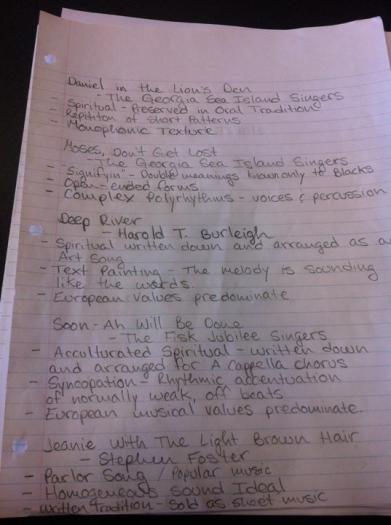 Daniel in the Lion's Den
- The Georgia Sea Island Singers
- Spiritual - Preserved in Oral Tradition
- Repitition of Short Patterns
- Monophonic Texture
Moses, Don't Get Lost
- The Georgia Sea Island Singers
- "Signifyin" - Double meanings known only to Blacks
- Open-ended forms
- Complex Polyrhythms - voices & percussion
Deep River
- Harold T. Burleigh
- Spiritual written down and arranged as a
Art Song
- Text Painting - The melody is sounding
like the words.
- European values predominate
Soon-Ah Will Be Done
- The Fisk Jubilee Singers
- Acculturated Spiritual - written down
and arranged for A Cappella chorus
- Syncopation - Rhythmic accentuation
of normally weak, off beats
- European musical values predominate.
Jeanie With The Light Brown Hair
- Stephen Foster
- Parlor Song / Popular music
- Homogeneous Sound Ideal
- Written Tradition - Sold as sheet music